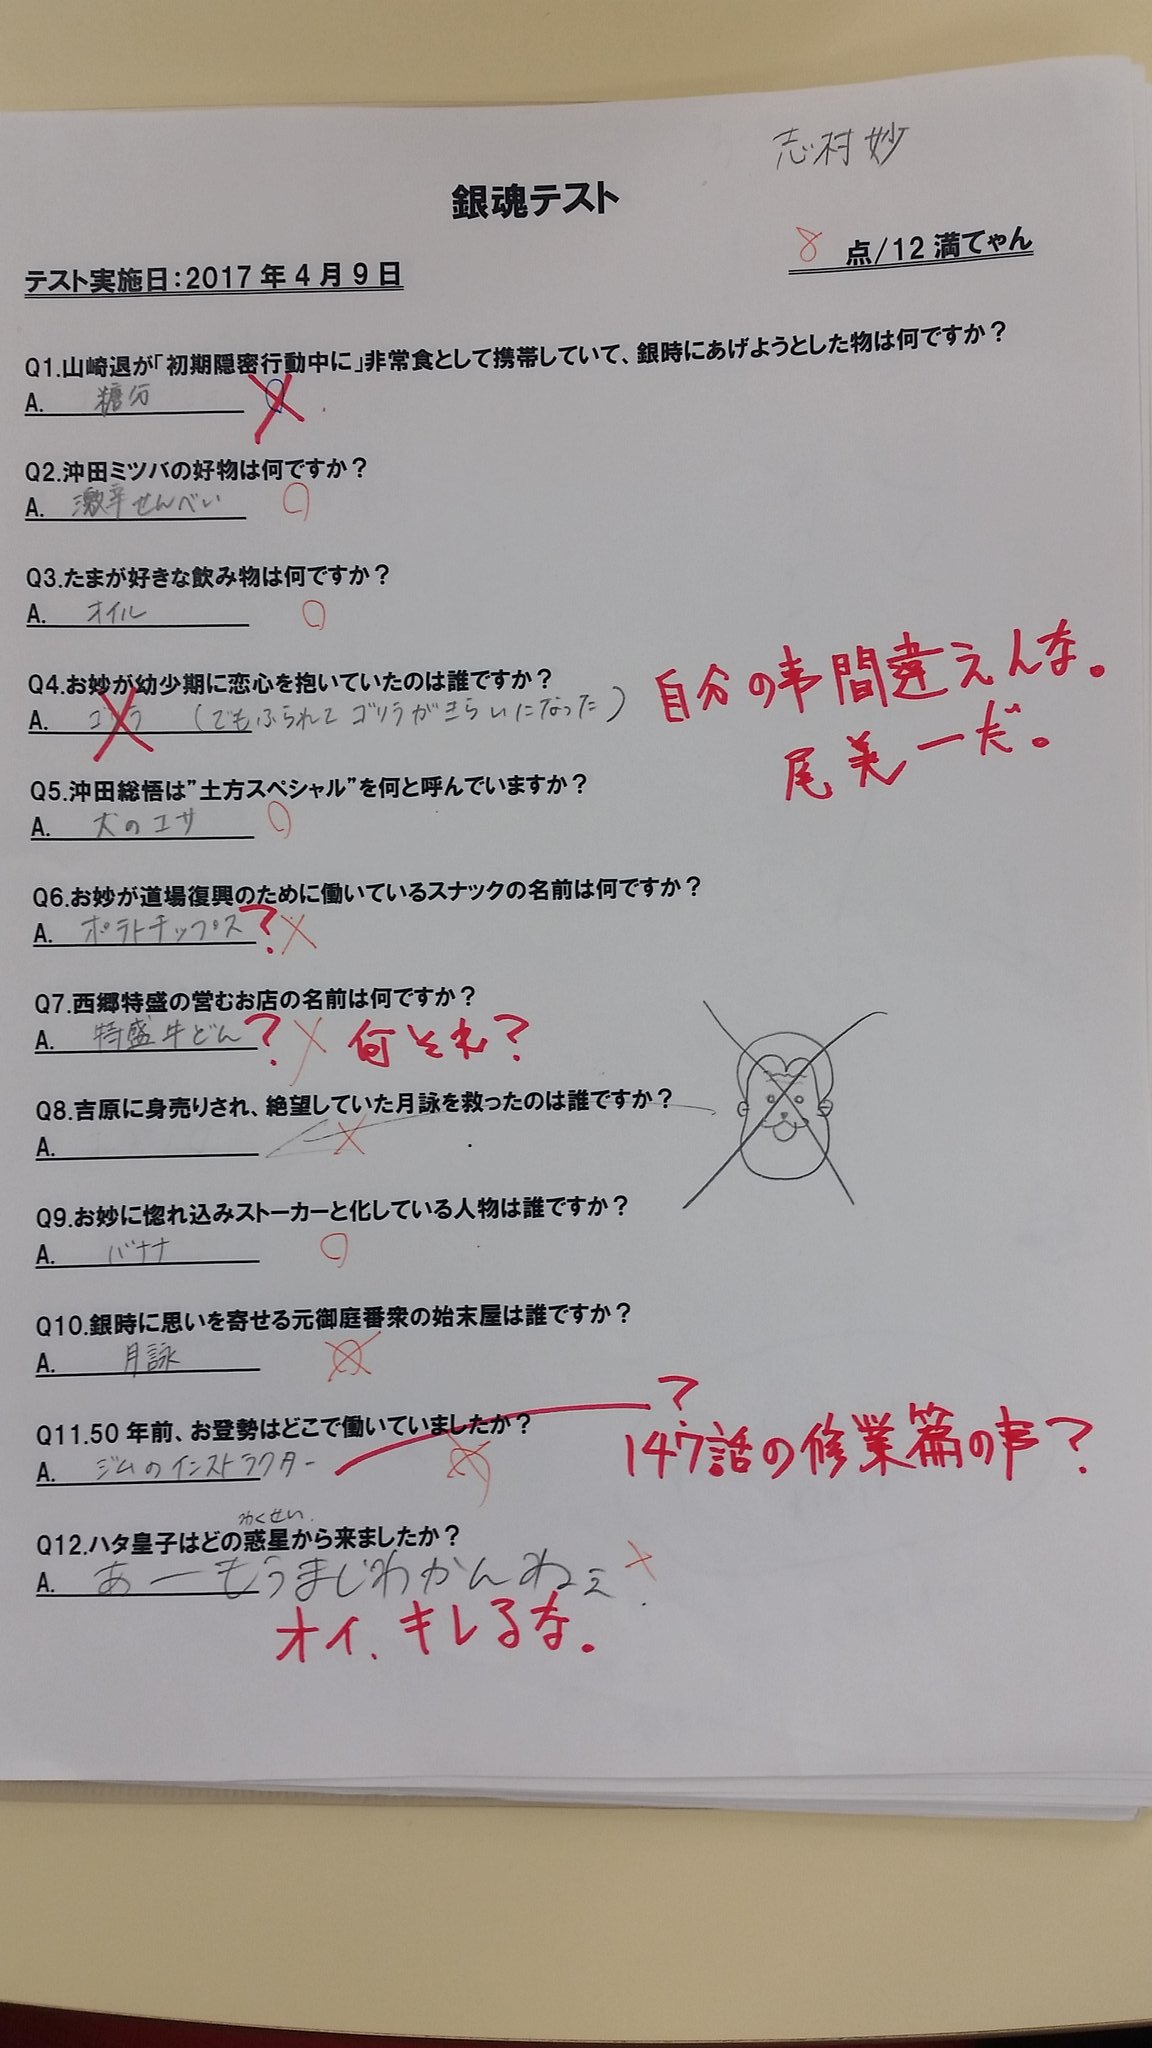 志村妙
銀魂テスト
8 点/12 満てゃん
テスト実施日:2017年4月9日
Q1.山崎退が「初期隠密行動中に」非常食として携帯していて、銀時にあげようとした物は何ですか?
A. 糖分
Q2.沖田ミツバの好物は何ですか?
A. 激辛せんべい
Q3.たまが好きな飲み物は何ですか?
A. オイル
Q4.お妙が幼少期に恋心を抱いていたのは誰ですか?
A. ゴリラ (でもふられてゴリラがきらいになった)
自分の事間違えんな。
尾美一だ。
Q5.沖田総悟は”土方スペシャル”を何と呼んでいますか?
A. 犬のエサ
Q6.お妙が道場復興のために働いているスナックの名前は何ですか?
A. ポテトチップス ?
Q7.西郷特盛の営むお店の名前は何ですか?
A. 特盛牛どん ? 何それ?
Q8.吉原に身売りされ、絶望していた月詠を救ったのは誰ですか?
A.
Q9.お妙に惚れ込みストーカーと化している人物は誰ですか?
A. バナナ
Q10.銀時に思いを寄せる元御庭番衆の始末屋は誰ですか?
A. 月詠
Q11.50年前、お登勢はどこで働いていましたか?
A. ジムのインストラクター
?
147話の修業篇の事?
わくせい
Q12.ハタ皇子はどの惑星から来ましたか?
A. あーもうまじわかんねぇ
オイ、キレるな。